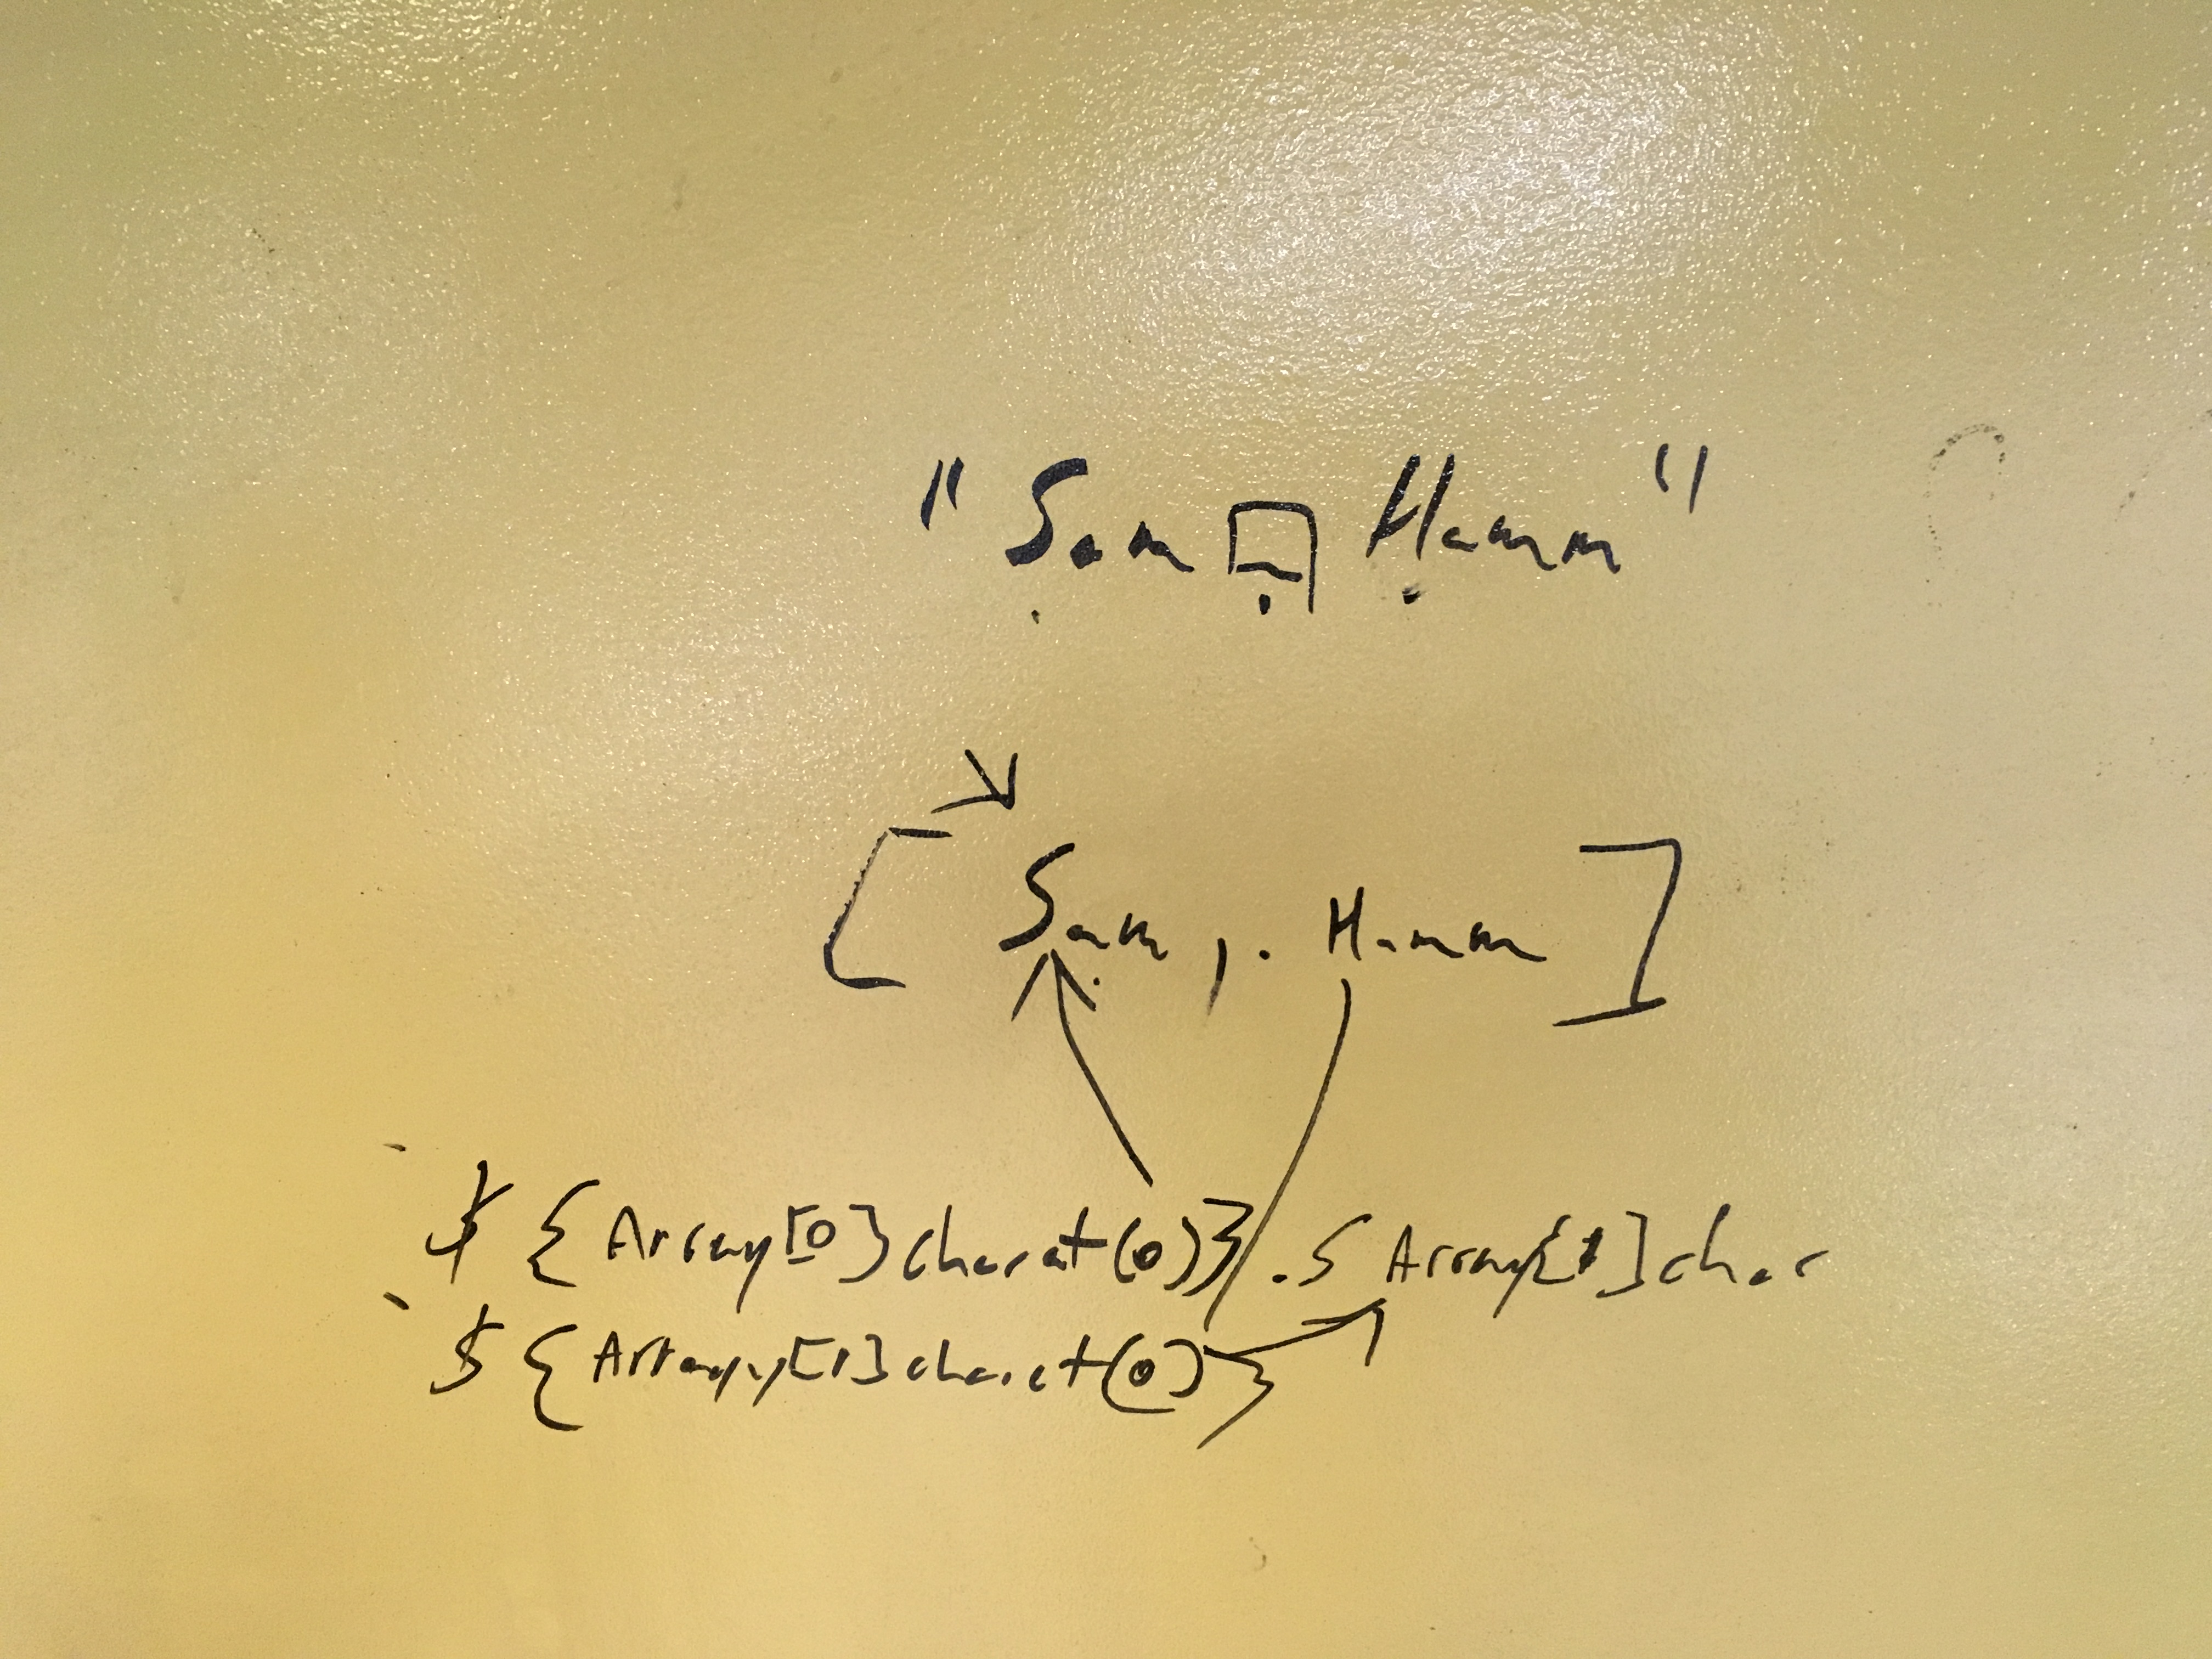 "Sam Hamm"
[ Sam , . Hamm ]
` ${Array[0]charat(0)} . $ Array[1]char
` ${Array[1]charat(0)}